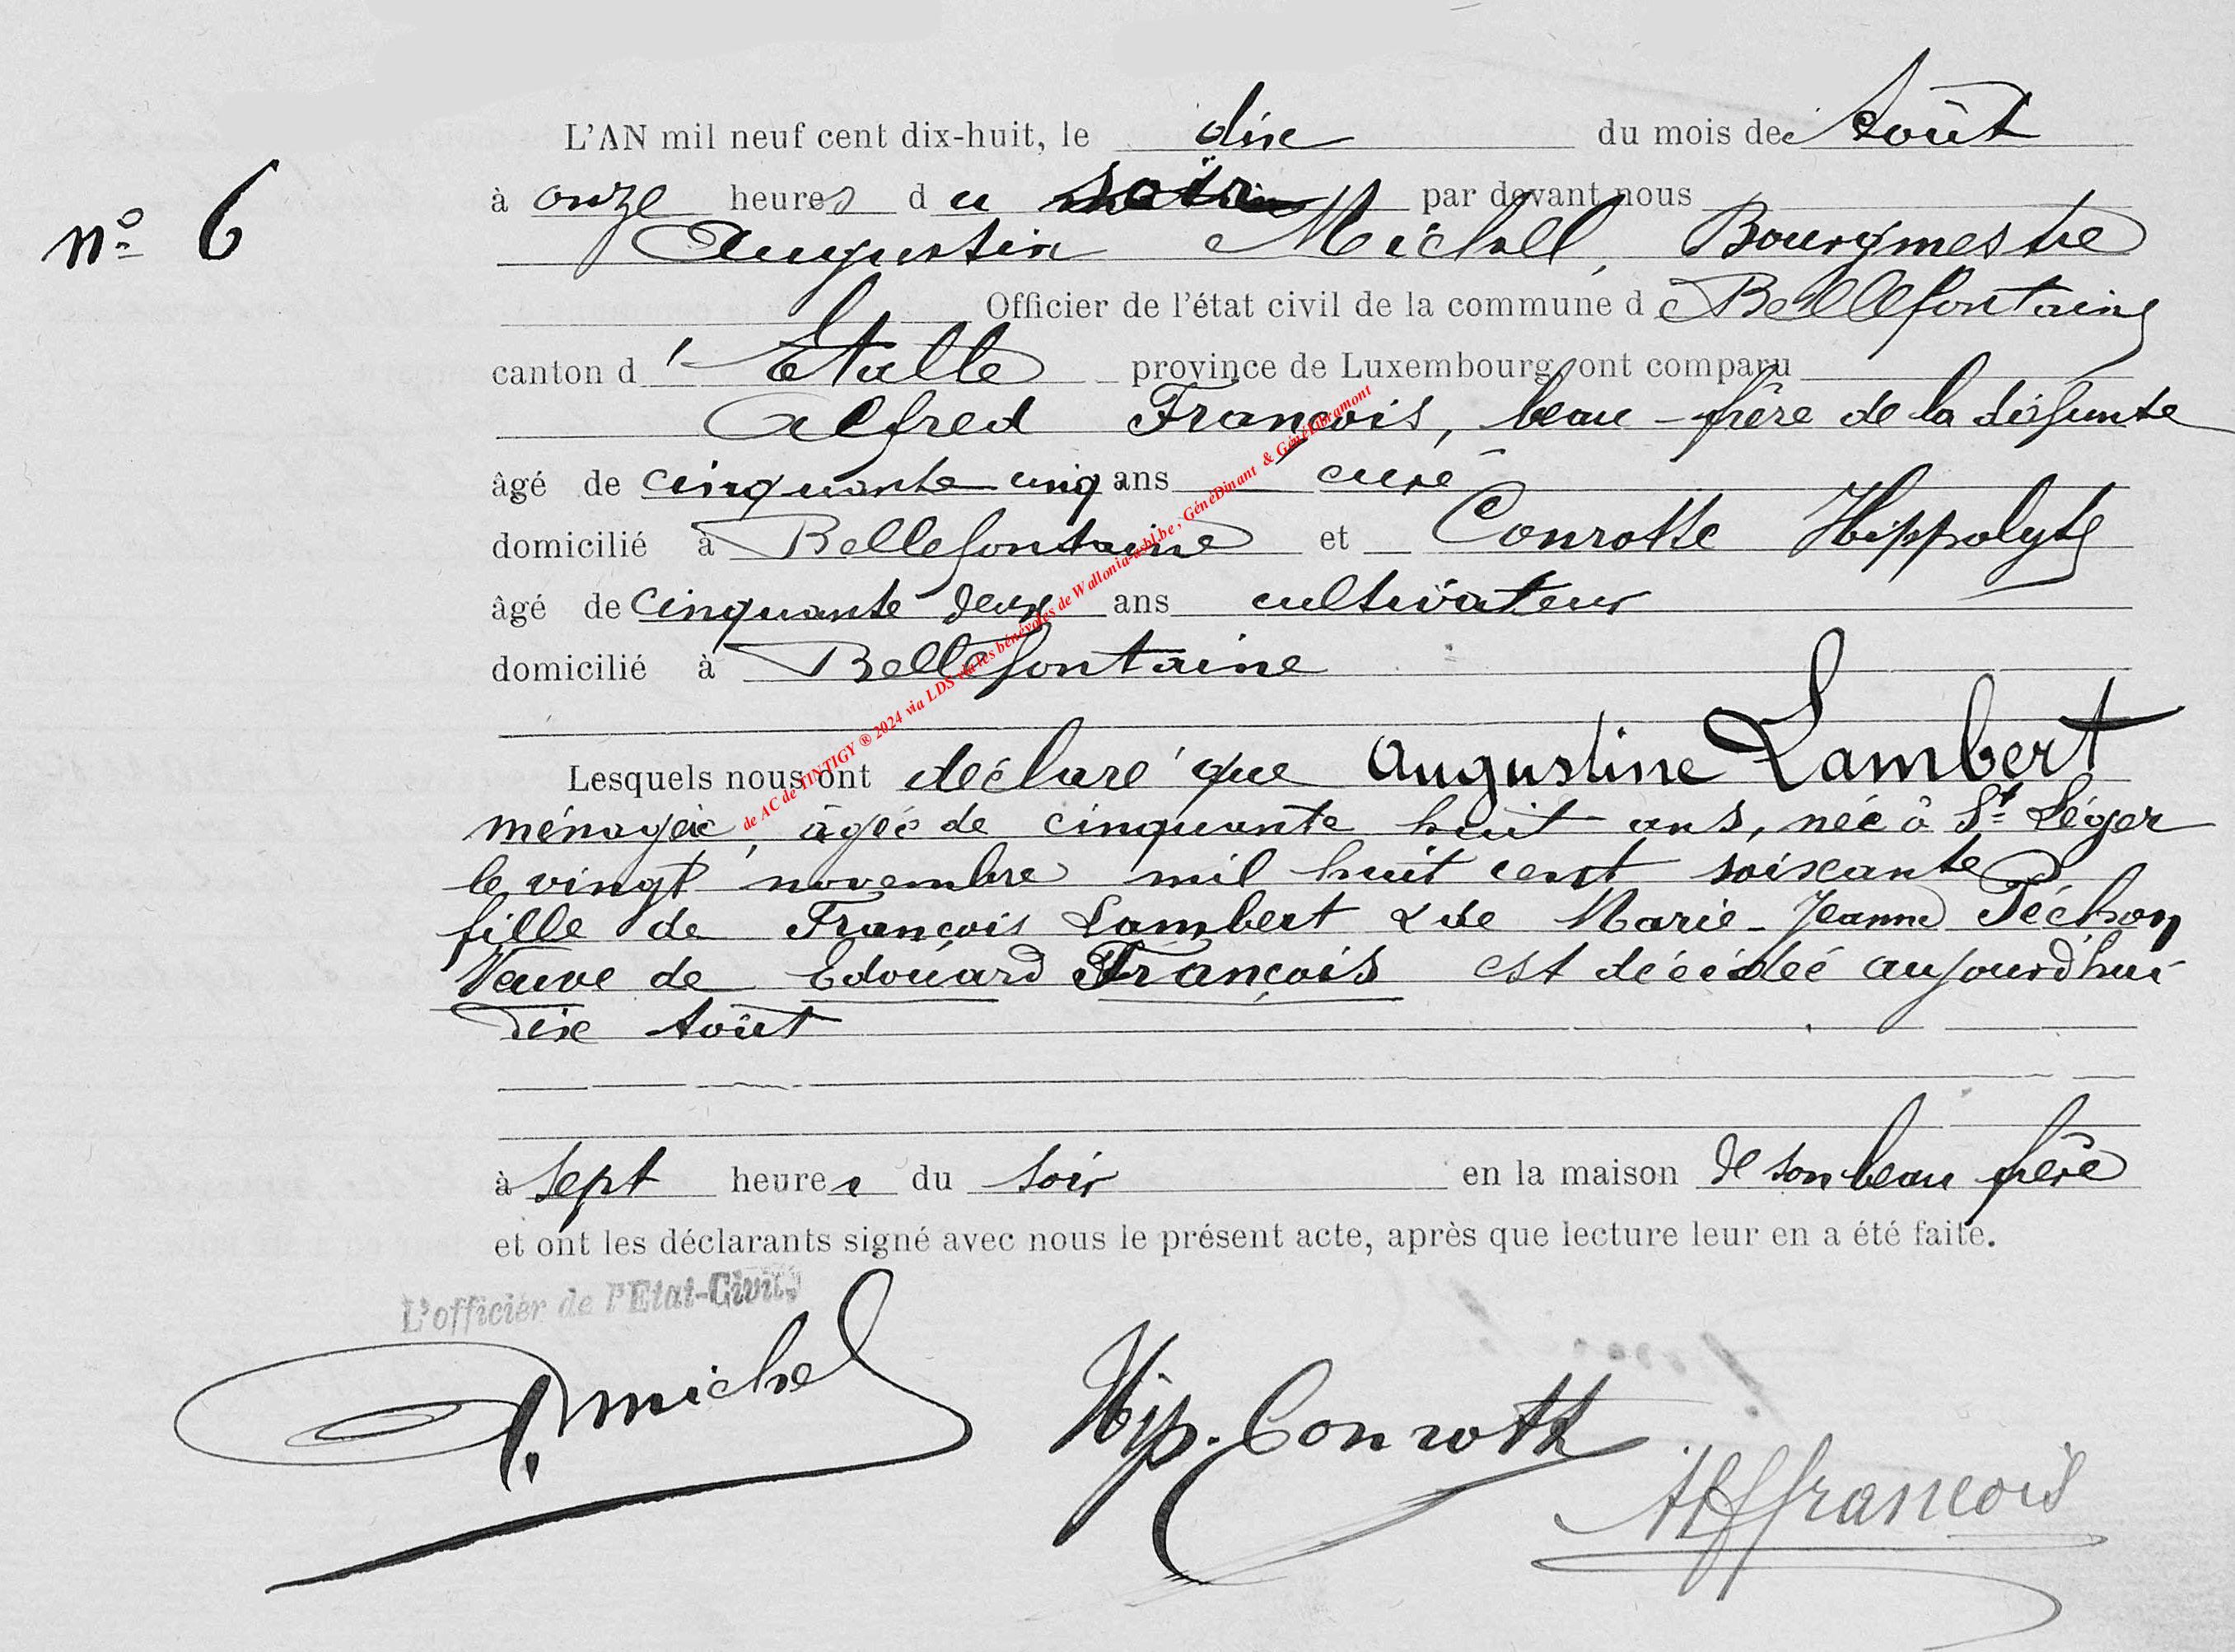 L'AN mil neuf cent dix-huit, le dix du mois de Août
n° 6
à onze heures du soir par devant nous
Augustin Michel, Bourgmestre
Officier de l'état civil de la commune de Bellefontaine
canton d'Etalle province de Luxembourg, ont comparu
Alfred François, beau-frère de la défunte
âgé de cinquante cinq ans curé
domicilié à Bellefontaine et Conrotte Hippolyte
âgé de cinquante deux ans cultivateur
domicilié à Bellefontaine
Lesquels nous ont déclaré que Augustine Lambert
ménagère, âgée de cinquante huit ans, née à St Léger
le vingt novembre mil huit cent soixante
fille de François Lambert & de Marie-Jeanne Péchon
Veuve de Edouard François est décédée aujourd'hui
dix Août
à sept heures du soir en la maison de son beau frère
et ont les déclarants signé avec nous le présent acte, après que lecture leur en a été faite.
L'officier de l'Etat-Civil,
A. Michel
Hip. Conrotte
Alf françois
de AC de TINTIGY ® 2024 via LDS via les bénévoles de Wallonia-asbl.be, GénéDinant & GénéLibramont